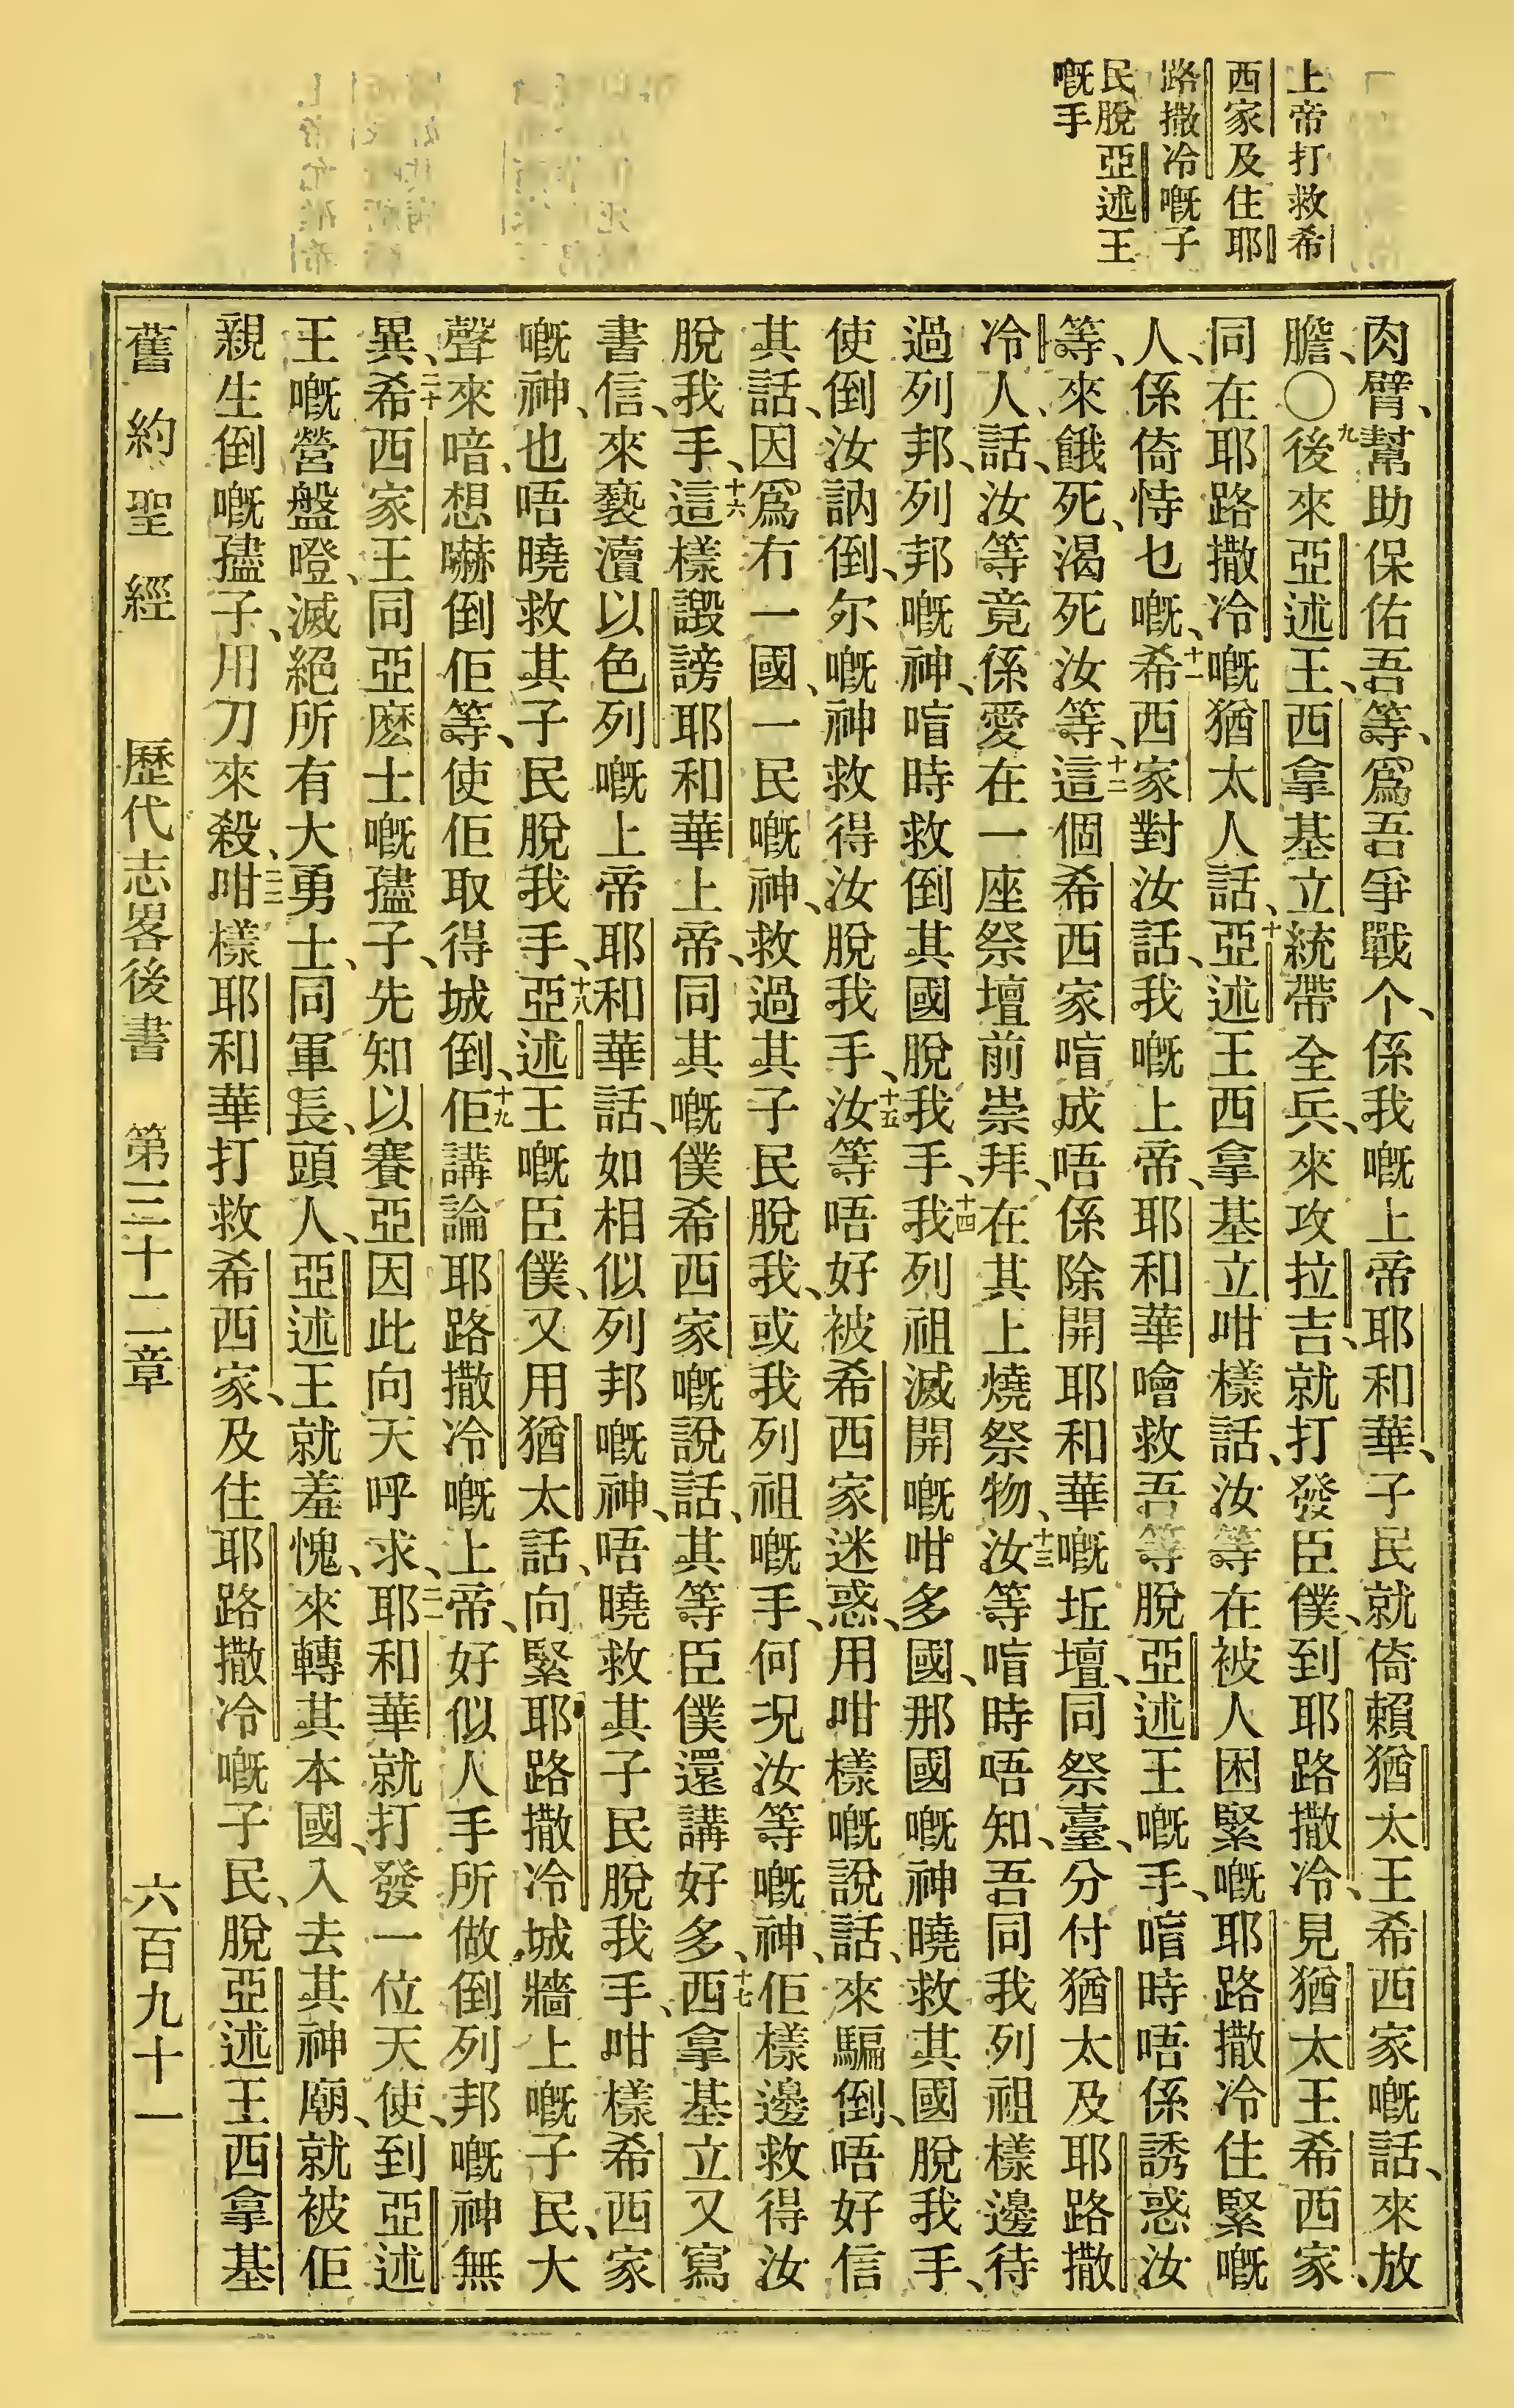 上帝打救希
西家及住耶
路撒冷嘅子
民脫亞述王
嘅手
肉臂、幫助保佑吾等、爲吾爭戰个、係我嘅上帝耶和華、子民就倚賴猶太王希西家嘅話、來放
膽、○九後來亞述王、西拿基立統帶全兵、來攻拉吉、就打發臣僕、到耶路撒冷、見猶太王希西家、
同在耶路撒冷嘅猶太人話、十亞述王西拿基立咁樣話、汝等在被人困緊嘅耶路撒冷住緊嘅
人、係倚恃乜嘅、十一希西家對汝話、我嘅上帝、耶和華噲救吾等脫亞述王嘅手、喧時唔係誘惑汝
等、來餓死、渴死汝等、十二這個希西家喧成唔係除開耶和華嘅坵壇、同祭臺、分付猶太及耶路撒
冷人、話、汝等竟係愛在一座祭壇前崇拜、在其上燒祭物、十三汝等喧時唔知、吾同我列祖樣邊待
過列邦、列邦嘅神、喧時救倒其國脫我手、十四我列祖滅開嘅咁多國、那國嘅神曉救其國脫我手、
使倒汝訥倒、尔嘅神救得汝脫我手、十五汝等唔好被希西家迷惑、用咁樣嘅說話、來騙倒、唔好信
其話、因爲冇一國、一民嘅神、救過其子民脫我、或我列祖嘅手、何况汝等嘅神、佢樣邊救得汝
脫我手、十六這樣譭謗耶和華上帝、同其嘅僕希西家嘅說話、其等臣僕還講好多、十七西拿基立又寫
書信、來褻瀆以色列嘅上帝耶和華話、如相似列邦嘅神、唔曉救其子民脫我手、咁樣希西家
嘅神、也唔曉救其子民脫我手、十八亞述王嘅臣僕、又用猶太話、向緊耶路撒冷城牆上嘅子民、大
聲來喑、想嚇倒佢等、使佢取得城倒、十九佢講論耶路撒冷嘅上帝、好似人手所做倒列邦嘅神無
異、二十希西家王同亞麽士嘅孻子、先知以賽亞因此向天呼求、二一耶和華就打發一位天使、到亞述
王嘅營盤嶝、滅絕所有大勇士、同軍長、頭人、亞述王就羞愧、來轉其本國、入去其神廟、就被佢
親生倒嘅孻子、用刀來殺、二二咁樣耶和華打救希西家、及住耶路撒冷嘅子民、脫亞述王西拿基
舊約聖經 歷代志畧後書 第三十二章 六百九十一